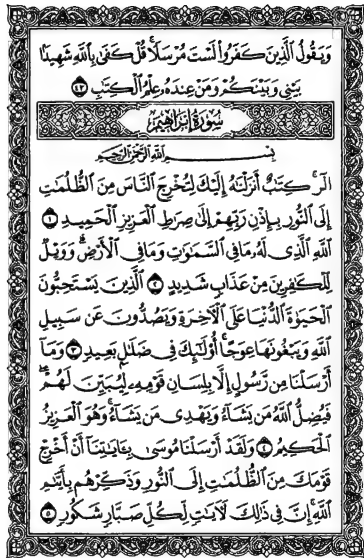 وَيَقُولُ ٱلَّذِينَ كَفَرُواْ لَسْتَ مُرْسَلًا ۚ قُلْ كَفَىٰ بِٱللَّهِ شَهِيدًۢا
بَيْنِى وَبَيْنَكُمْ وَمَنْ عِندَهُۥ عِلْمُ ٱلْكِتَٰبِ ٤٣
سُورَةُ إِبْرَاهِيمَ
بِسْمِ ٱللَّهِ ٱلرَّحْمَٰنِ ٱلرَّحِيمِ
الٓر ۚ كِتَٰبٌ أَنزَلْنَٰهُ إِلَيْكَ لِتُخْرِجَ ٱلنَّاسَ مِنَ ٱلظُّلُمَٰتِ
إِلَى ٱلنُّورِ بِإِذْنِ رَبِّهِمْ إِلَىٰ صِرَٰطِ ٱلْعَزِيزِ ٱلْحَمِيدِ ١
ٱللَّهِ ٱلَّذِى لَهُۥ مَا فِى ٱلسَّمَٰوَٰتِ وَمَا فِى ٱلْأَرْضِ ۗ وَوَيْلٌ
لِّلْكَٰفِرِينَ مِنْ عَذَابٍ شَدِيدٍ ٢ ٱلَّذِينَ يَسْتَحِبُّونَ
ٱلْحَيَوٰةَ ٱلدُّنْيَا عَلَى ٱلْءَاخِرَةِ وَيَصُدُّونَ عَن سَبِيلِ
ٱللَّهِ وَيَبْغُونَهَا عِوَجًا ۚ أُوْلَٰٓئِكَ فِى ضَلَٰلٍۭ بَعِيدٍ ٣ وَمَآ
أَرْسَلْنَا مِن رَّسُولٍ إِلَّا بِلِسَانِ قَوْمِهِۦ لِيُبَيِّنَ لَهُمْ ۖ
فَيُضِلُّ ٱللَّهُ مَن يَشَآءُ وَيَهْدِى مَن يَشَآءُ ۚ وَهُوَ ٱلْعَزِيزُ
ٱلْحَكِيمُ ٤ وَلَقَدْ أَرْسَلْنَا مُوسَىٰ بِـَٔايَٰتِنَآ أَنْ أَخْرِجْ
قَوْمَكَ مِنَ ٱلظُّلُمَٰتِ إِلَى ٱلنُّورِ وَذَكِّرْهُم بِأَيَّىٰمِ
ٱللَّهِ ۚ إِنَّ فِى ذَٰلِكَ لَءَايَٰتٍ لِّكُلِّ صَبَّارٍ شَكُورٍ ٥